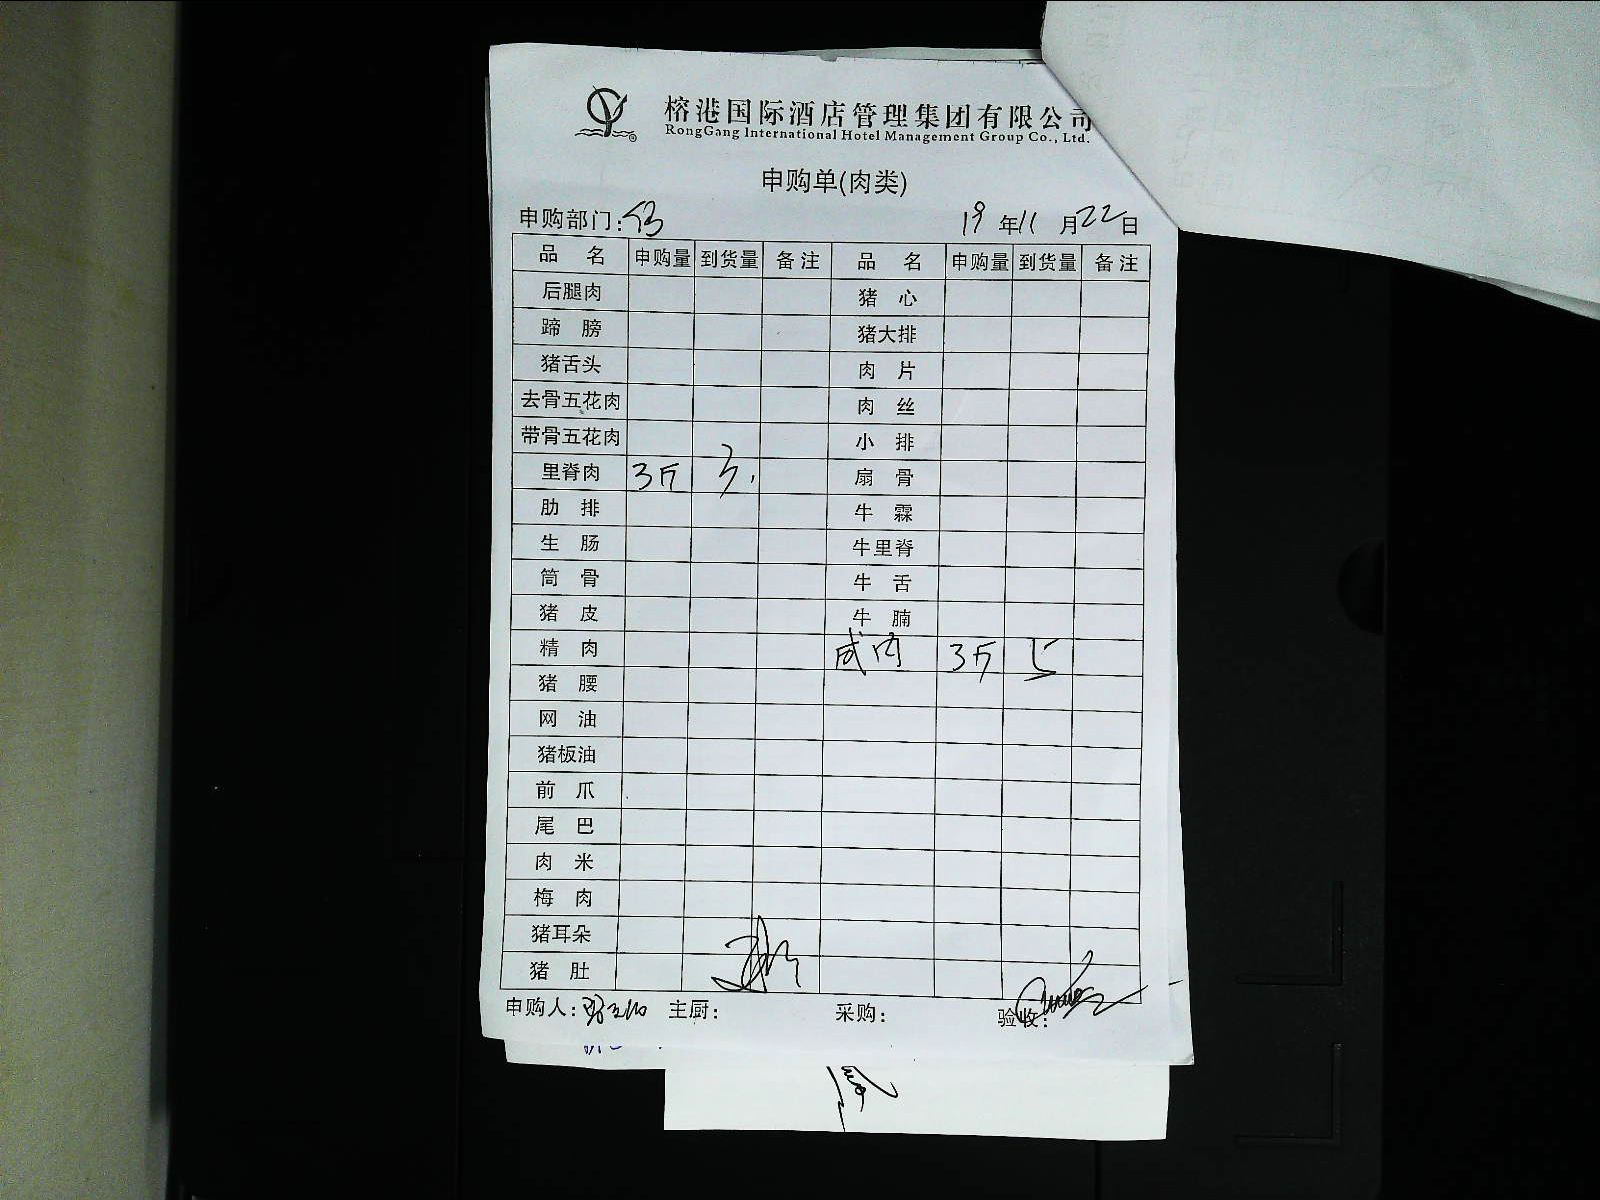 榕港国际酒店管理集团有限公司
RongGang International Hotel Management Group Co., Ltd.
申购单(肉类)
申购部门: 19年11月22日
品名 申购量 到货量 备注 品名 申购量 到货量 备注
后腿肉 猪心
蹄膀 猪大排
猪舌头 肉片
去骨五花肉 肉丝
带骨五花肉 小排
里脊肉 3斤 3. 扇骨
肋排 牛霖
生肠 牛里脊
筒骨 牛舌
猪皮 牛腩
精肉 咸肉 3斤
猪腰
网油
猪板油
前爪
尾巴
肉米
梅肉
猪耳朵
猪肚
申购人: 主厨: 采购: 验收: